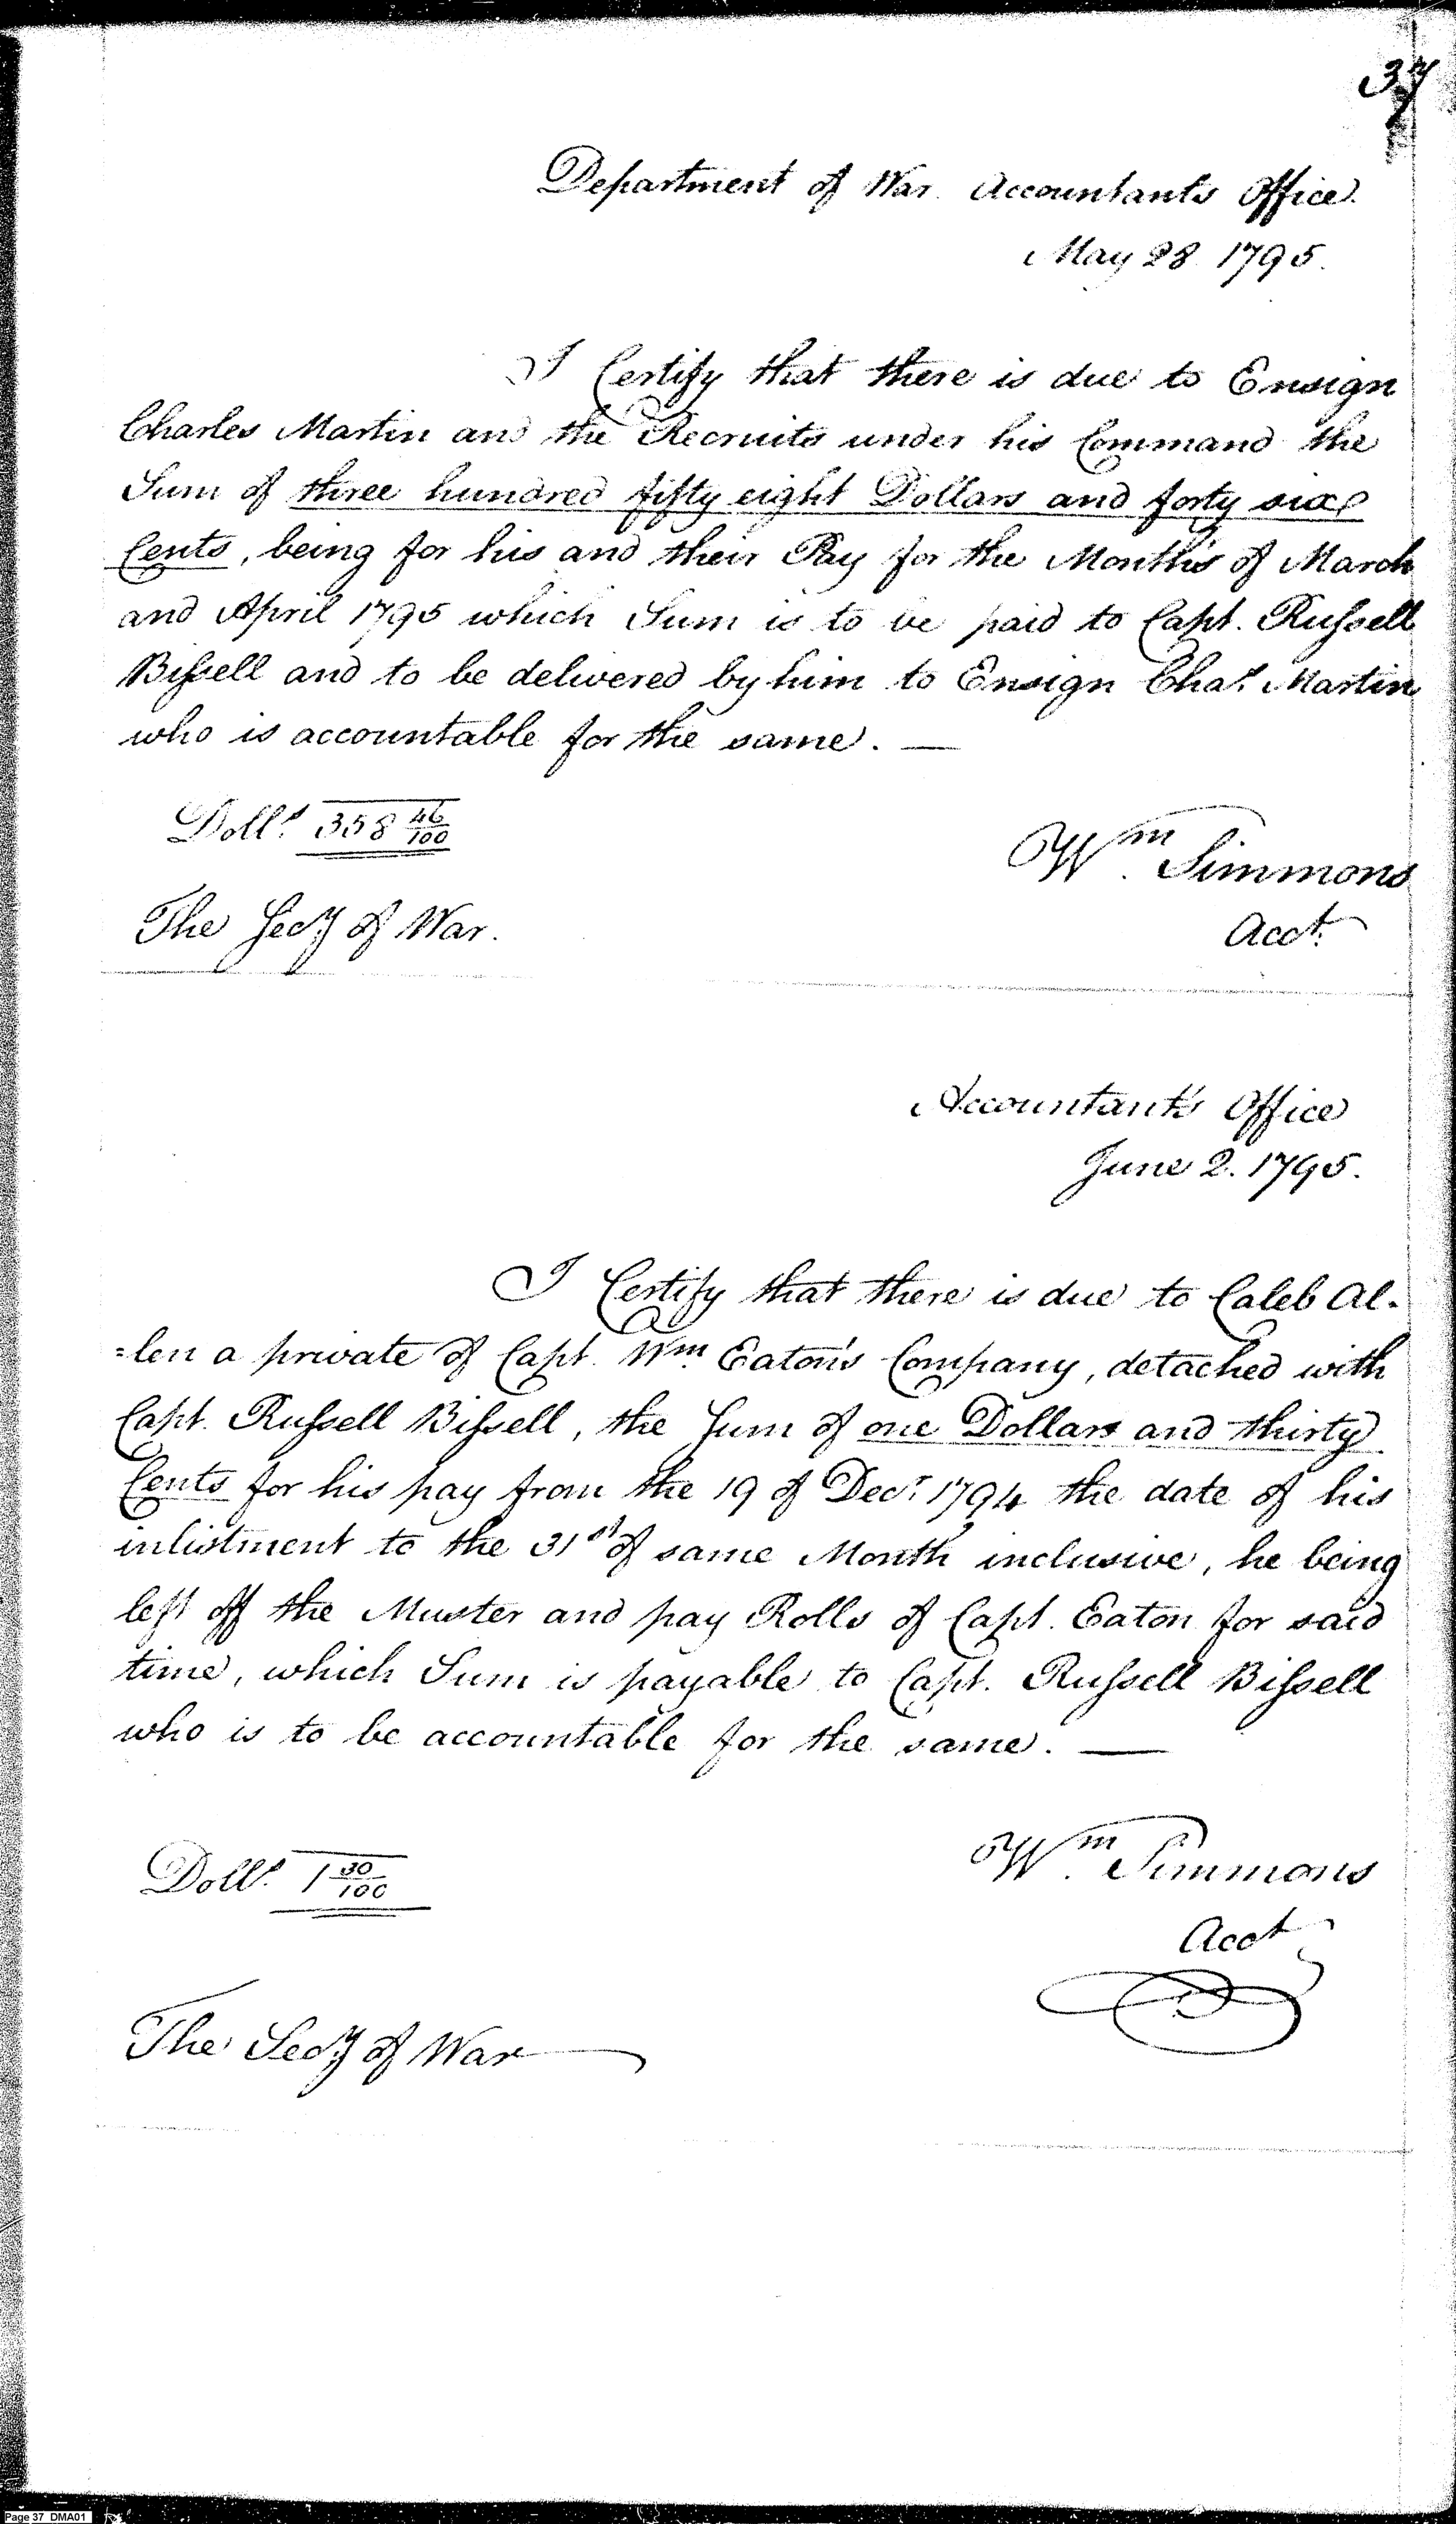 37
Department of War Accountants Office.
May 28 1795.
I Certify that there is due to Ensign
Charles Martin and the Recruits under his Command the
Sum of three hundred fifty eight Dollars and forty six
Cents, being for his and their Pay for the Months of March
and April 1795 which Sum is to be paid to Capt. Russell
Bissell and to be delivered by him to Ensign Chas. Martin
who is accountable for the same. —
Dolls. 358 46/100
Wm. Simmons
The Secy of War.
Acct.
Accountant's Office
June 2. 1795.
I Certify that there is due to Caleb Al-
=len a private of Capt. Wm. Eaton's Company, detached with
Capt. Russell Bissell, the Sum of one Dollars and thirty
Cents for his pay from the 19 of Decr. 1794 the date of his
inlistment to the 31st of same Month inclusive, he being
left off the Muster and pay Rolls of Capt. Eaton for said
time, which Sum is payable to Capt. Russell Bissell
who is to be accountable for the same. —
Dolls. 1 30/100
Wm. Simmons
Acct
The Secy of War
Page 37 DMA01